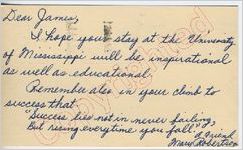 Dear James,
I hope your stay at the University
of Mississippi will be inspirational
as well as educational.
Remember also in your climb to
success that
"Success lies not in never failing,
But rising everytime you fall."
A Friend
Mary Robertson